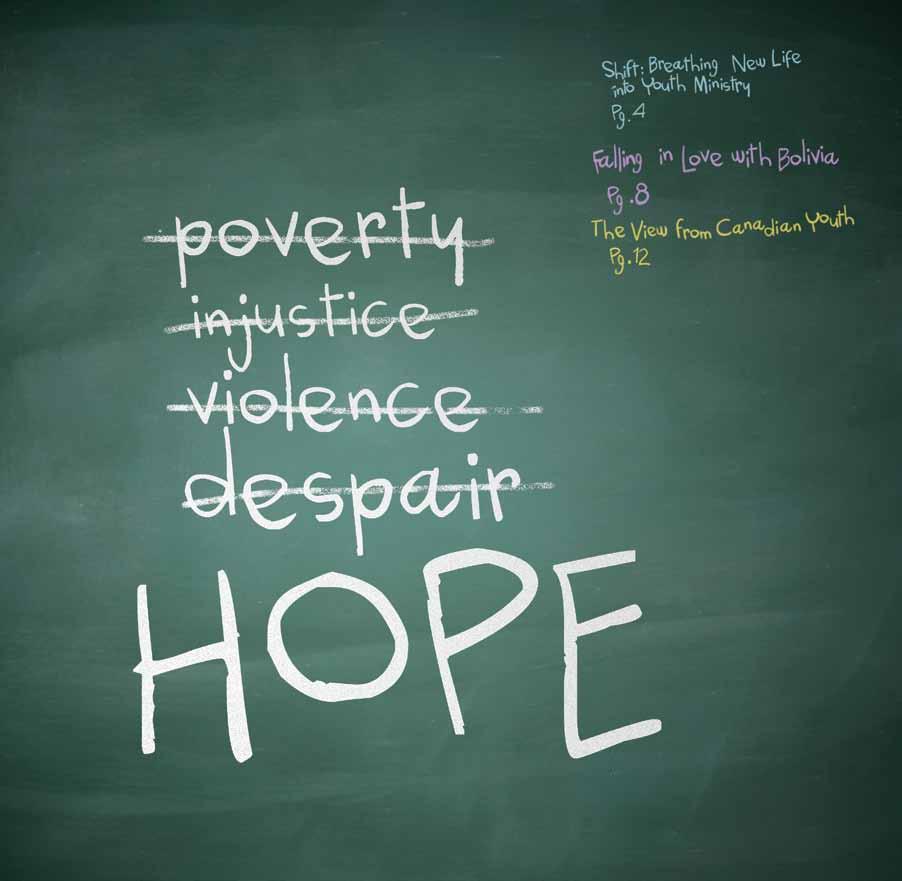 Shift: Breathing New Life
into Youth Ministry
Pg.4
Falling in Love with Bolivia
Pg.8
The View from Canadian Youth
Pg.12
poverty
injustice
violence
despair
HOPE